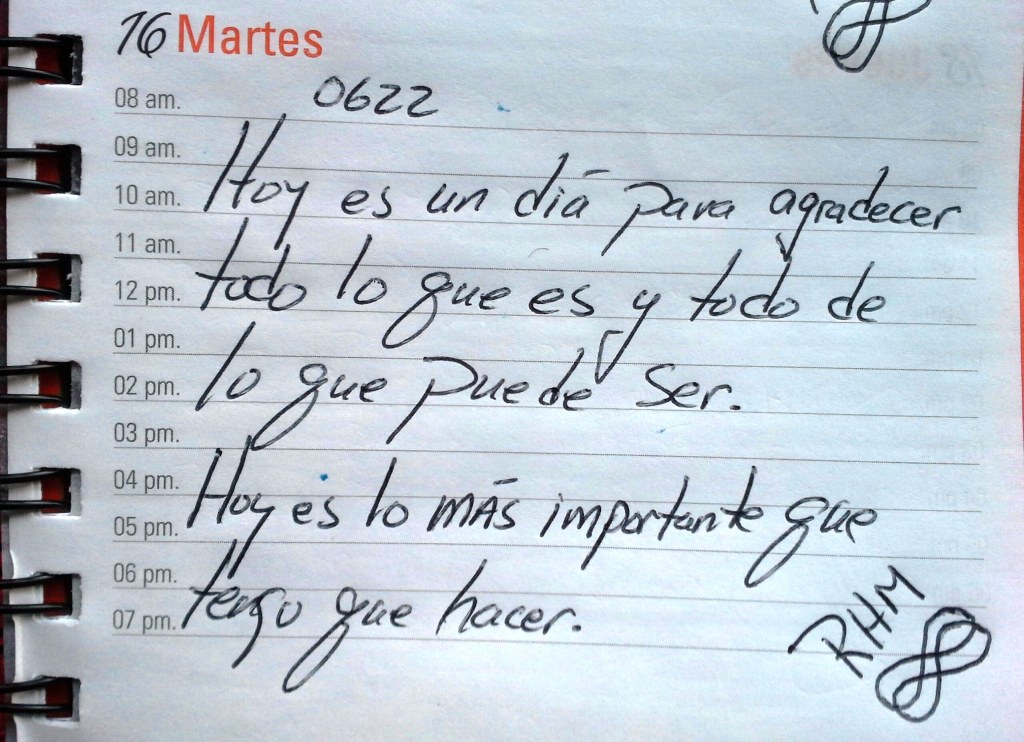 16 Martes
08 am. 0622
09 am.
10 am. Hoy es un día para agradecer
11 am.
12 pm. todo lo que es y todo de
01 pm.
02 pm. lo que puede ser.
03 pm.
04 pm.
05 pm. Hoy es lo MÁS importante que
06 pm.
07 pm. tengo que hacer.
RHM